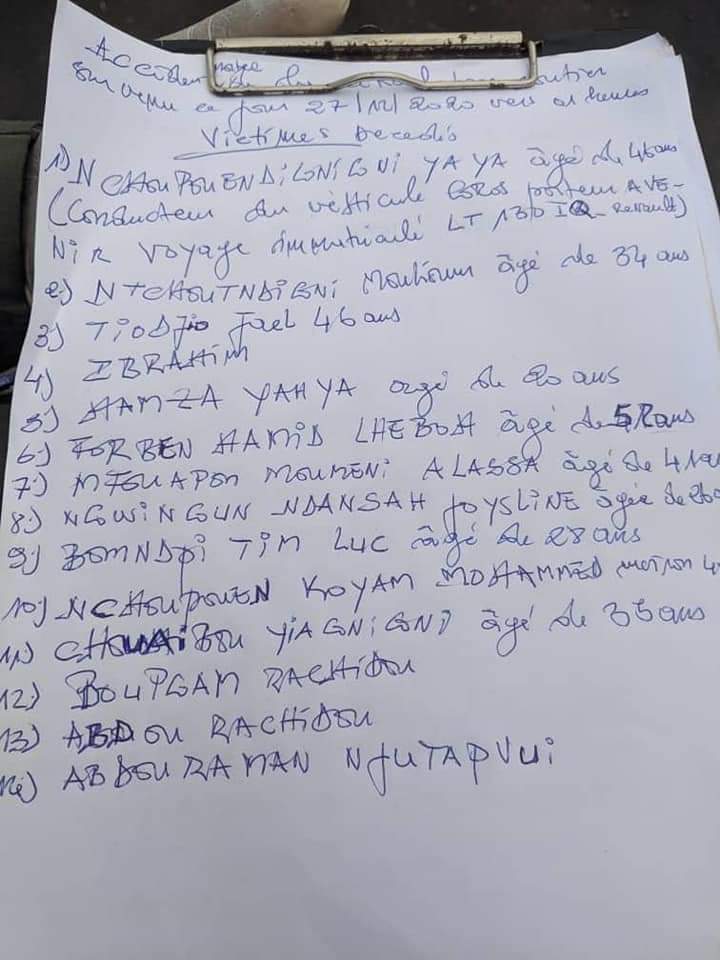 Accident
survenu ce jour 27/12/2020 vers 01 heures
Victimes Decedés
1) NCHOUPOUENDIGNIGNI YAYA âgé de 46 ans
(Conducteur du véhicule Gros porteur AVE-
NIR Voyage immatriculé LT 130 IQ - Renault)
2) NTCHOUTNDIGNI Mouhioun âgé de 34 ans
3) TIODJIO Joel 46 ans
4) IBRAHIM
5) HAMZA YAHYA agé de 20 ans
6) FORBEN HAMID LHEBOH âgé de 52 ans
7) MFOUAPON MOUMENI ALASSA âgé de 41 ans
8) NGWINGUN NDANSAH JOYSLINE âgée de
9) BOMNDPI TIM LUC âgé de 28 ans
10) NCHOUPOUEN KOYAM MOHAMMED
11) CHOUAIBOU YIAGNIGNI âgé de 35 ans
12) BOUPGAM RACHIDOU
13) ABDOU RACHIDOU
14) ABDOURAMAN NJUTAPVUI